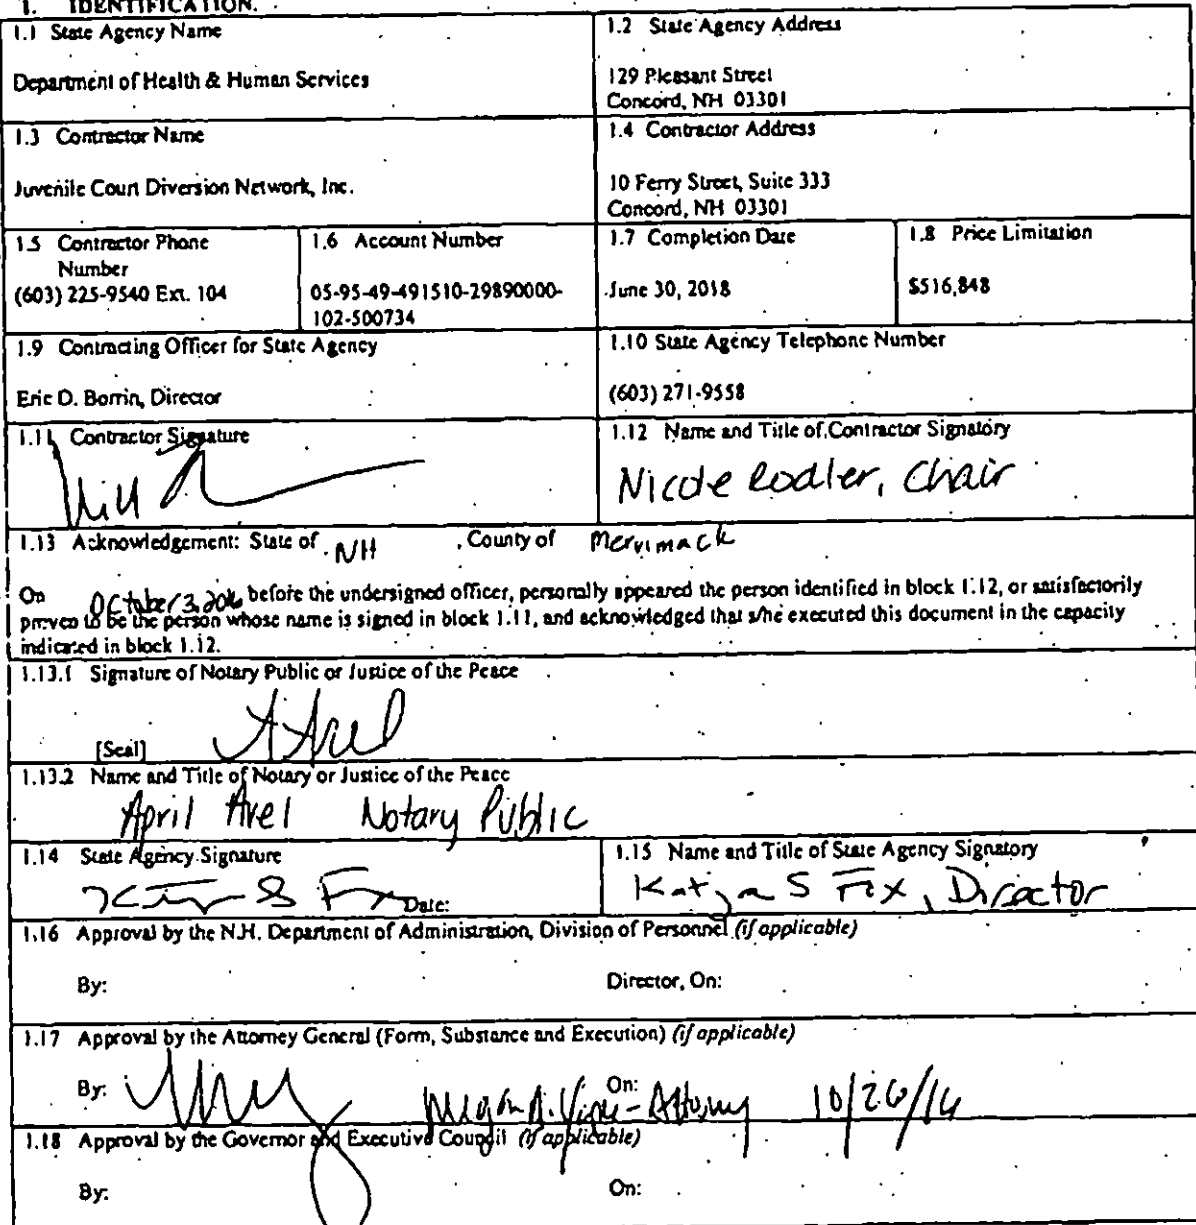 1. IDENTIFICATION.
1.1 State Agency Name
Department of Health & Human Services
1.2 State Agency Address
129 Pleasant Street
Concord, NH 03301
1.3 Contractor Name
Juvenile Court Diversion Network, Inc.
1.4 Contractor Address
10 Ferry Street, Suite 333
Concord, NH 03301
1.5 Contractor Phone
Number
(603) 225-9540 Ext. 104
1.6 Account Number
05-95-49-491510-29890000-
102-500734
1.7 Completion Date
June 30, 2018
1.8 Price Limitation
$516,848
1.9 Contracting Officer for State Agency
Eric D. Borrin, Director
1.10 State Agency Telephone Number
(603) 271-9558
1.11 Contractor Signature
1.12 Name and Title of Contractor Signatory
Nicole Rodler, Chair
1.13 Acknowledgement: State of NH , County of Merrimack
On October 3, 2016 before the undersigned officer, personally appeared the person identified in block 1.12, or satisfactorily
proven to be the person whose name is signed in block 1.11, and acknowledged that s/he executed this document in the capacity
indicated in block 1.12.
1.13.1 Signature of Notary Public or Justice of the Peace
[Seal]
1.13.2 Name and Title of Notary or Justice of the Peace
April Notary Public
1.14 State Agency Signature
Date:
1.15 Name and Title of State Agency Signatory
Katja S Fox, Director
1.16 Approval by the N.H. Department of Administration, Division of Personnel (if applicable)
By: Director, On:
1.17 Approval by the Attorney General (Form, Substance and Execution) (if applicable)
By: On: - Attorney 10/26/16
1.18 Approval by the Governor and Executive Council (if applicable)
By: On: